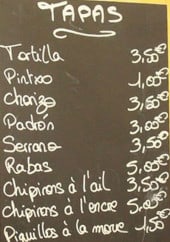 TAPAS
Tortilla 3,50€
Pintxo 1,00€
Chorizo 3,50€
Padrón 3,50€
Serrano 3,50€
Rabas 5,00€
Chipirons à l'ail 3,50€
Chipirons à l'encre 5,00€
Piquillos à la morue 1,50€